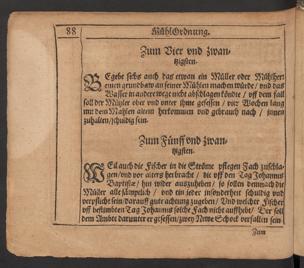 88 MühlOrdnung.
Zum Vier vnd zwan-
tzigsten.
BEgebe sichs auch das etwan ein Müller oder Mühlherr
einen grundbaw an seiner Mühlen machen würde / vnd das
Wasser in andere wege nicht abschlagen köndte / vff dem fall
soll der Müller ober vnd vnter ihme gesessen / vier Wochen lang
mit dem Mahlen altem herkommen vnd gebrauch nach / jnnen
zuhalten / schuldig sein.
Zum Fünff vnd zwan-
tzigsten.
WEil auch die Fischer in die Ströme pflegen Fach zuschla-
gen / vnd vor alters herbracht / die vff den Tag Johannis
Baptistæ / hin wider auszuheben / so sollen demnach die
Müller alle sämptlich / vnd ein jeder insonderheit schuldig vnd
verpflicht sein darauff gute achtung zugeben / Vnd welcher Fischer
vff bestimbten Tag Johannis solche Fach nicht auffhebt / Der soll
dem Ambt darunter er gesessen / zwey Newe Schock verfallen sein
Zum